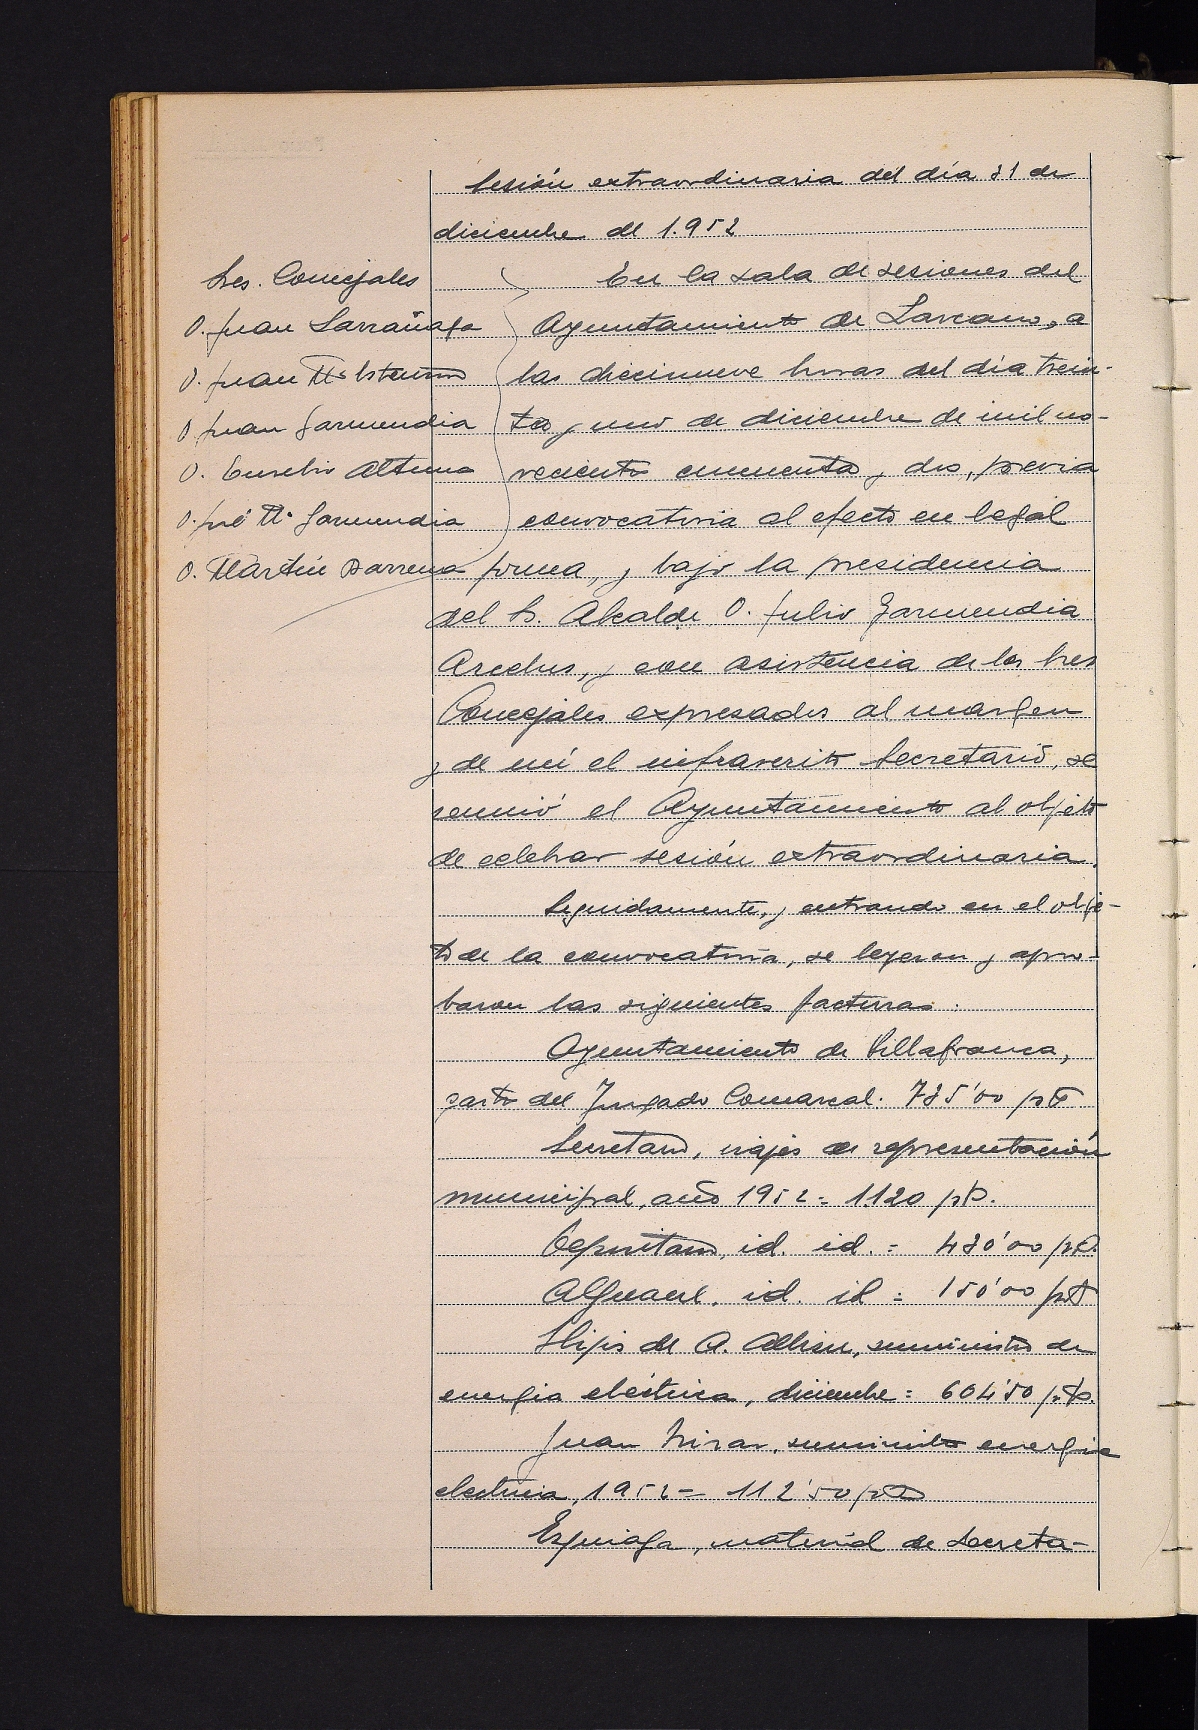 Sesión extraordinaria del día 31 de
diciembre de 1.952
Sres. Concejales
D. Juan Larrañaga
D. Juan Mª
D. Juan Garmendia
D. Eusebio Altuna
D. José Mª Garmendia
D. Martín Barrena
En la sala de sesiones del
Ayuntamiento de Lazcano, a
las diecinueve horas del día trein-
ta y uno de diciembre de mil no-
vecientos cincuenta y dos, previa
convocatoria al efecto en legal
forma, y bajo la presidencia
del Sr. Alcalde D. Julio Garmendia
y con asistencia de los Sres
Concejales expresados al margen
y de mí el infrascrito Secretario, se
reunió el Ayuntamiento al objeto
de celebrar sesión extraordinaria.
Seguidamente, y entrando en el obje-
to de la convocatoria, se leyeron y apro-
baron las siguientes facturas:
Ayuntamiento de Villafranca,
gastos del Juzgado Comarcal. 735'00 pts
Secretario, viajes de representación
municipal, año 1952 = 1.120 pts.
Depositario, id. id. = 430'00 pts.
Alguacil, id. id = 150'00 pts
Hijos de A. suministro de
energía eléctrica, diciembre = 604'50 pts.
Juan suministro energía
electrica, 1952 = 112'50 pts
material de Secreta-